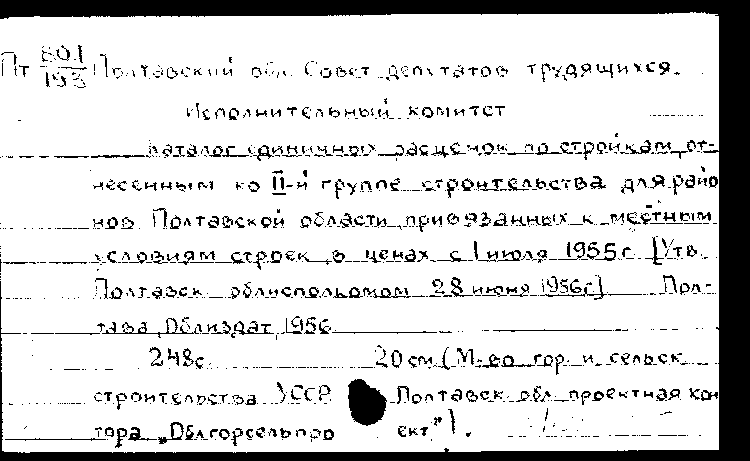 Пт 801/193 Полтавский обл. Совет депутатов трудящихся.
Исполнительный комитет
Каталог единичных расценок по стройкам, от-
несенным ко II-й группе строительства для райо
нов Полтавской области, привязанных к местным
условиям строек, в ценах с 1 июля 1955 г. [Утв.
Полтавск. облисполкомом 28 июня 1956г.] Пол-
тава, Облиздат, 1956
248с. 20 см (М-во гор. и сельск.
строительства УССР. Полтавск. обл. проектная кон
тора „Облгорсельпро ект").